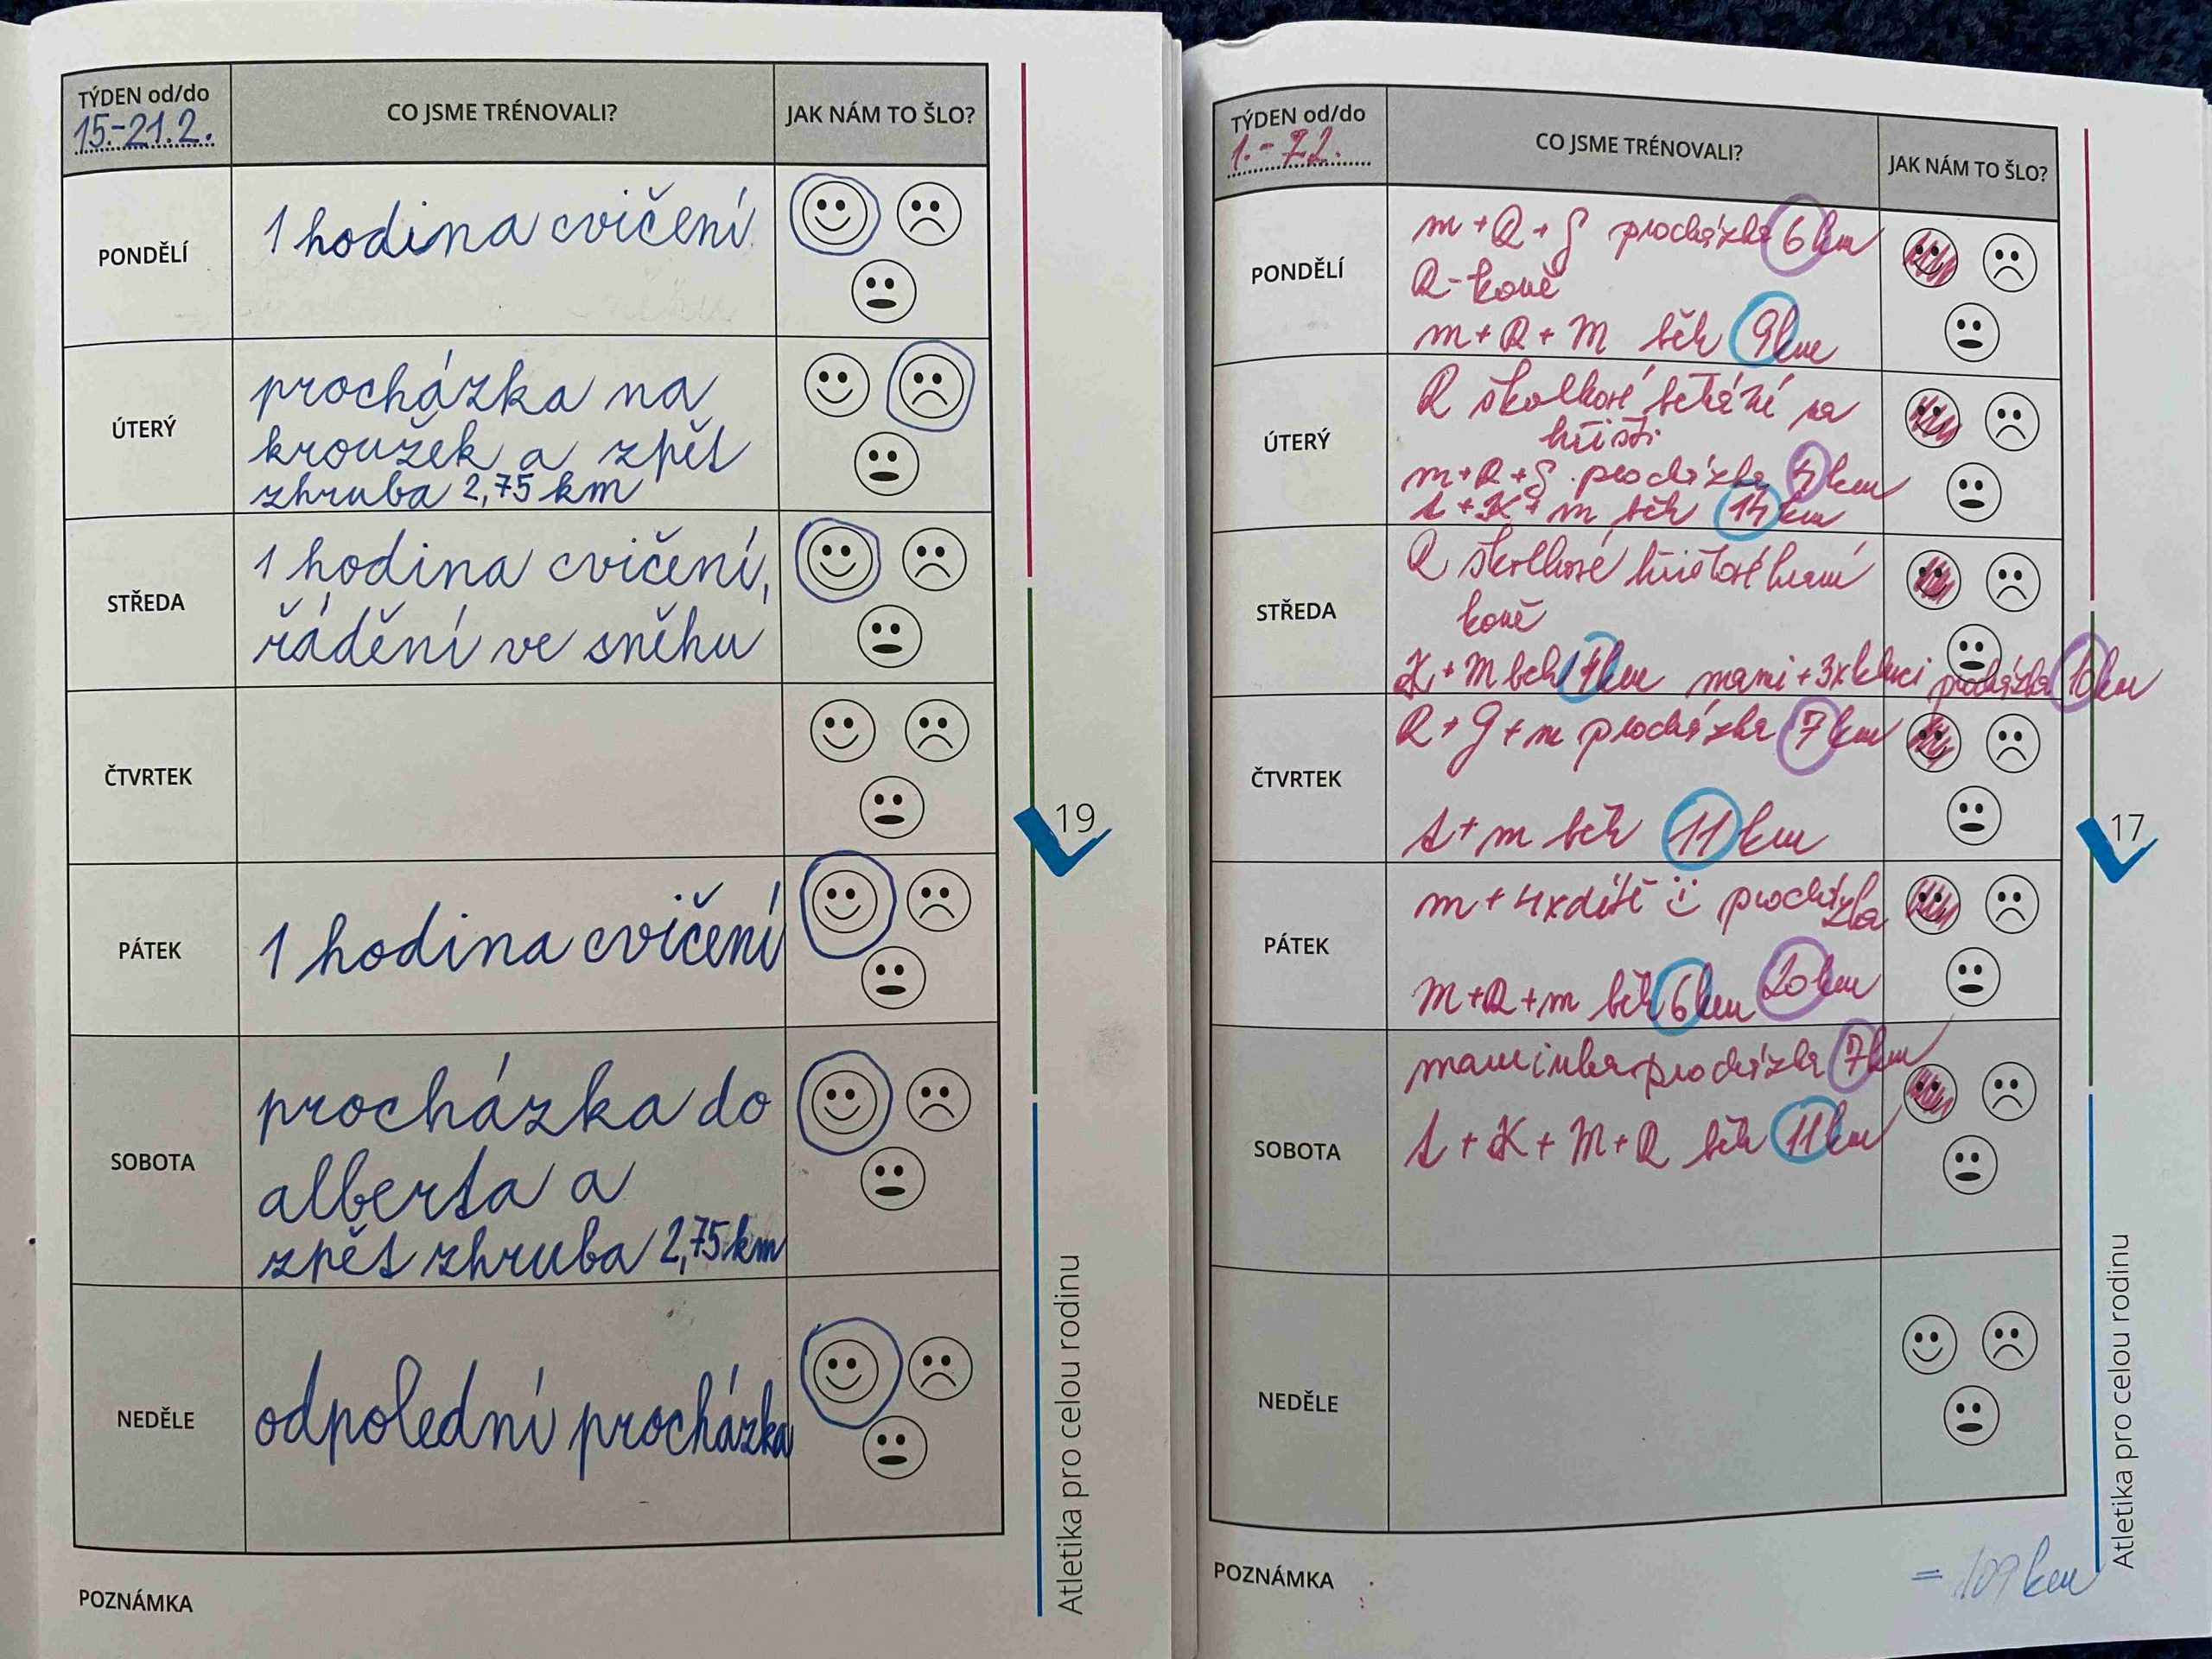 TÝDEN od/do
15.-21.2.
CO JSME TRÉNOVALI?
JAK NÁM TO ŠLO?
PONDĚLÍ
1 hodina cvičení
ÚTERÝ
procházka na
kroužek a zpět
zhruba 2,75 km
STŘEDA
1 hodina cvičení,
řádění ve sněhu
ČTVRTEK
PÁTEK
1 hodina cvičení
SOBOTA
procházka do
alberta a
zpět zhruba 2,75 km
NEDĚLE
odpolední procházka
POZNÁMKA
19
Atletika pro celou rodinu
TÝDEN od/do
1.-7.2.
CO JSME TRÉNOVALI?
JAK NÁM TO ŠLO?
PONDĚLÍ
procházka 6 km
koně
běh 9 km
ÚTERÝ
školkové běhání na
hřišti
procházka km
běh 14 km
STŘEDA
školkové hřišťové hraní
koně
K + M běh km mami + 3x kluci procházka 10 km
ČTVRTEK
procházka 7 km
běh 11 km
PÁTEK
m + 4x dítě procházka
běh 6 km 20 km
SOBOTA
maminka procházka 7 km
běh 11 km
NEDĚLE
POZNÁMKA
= 109 km
17
Atletika pro celou rodinu